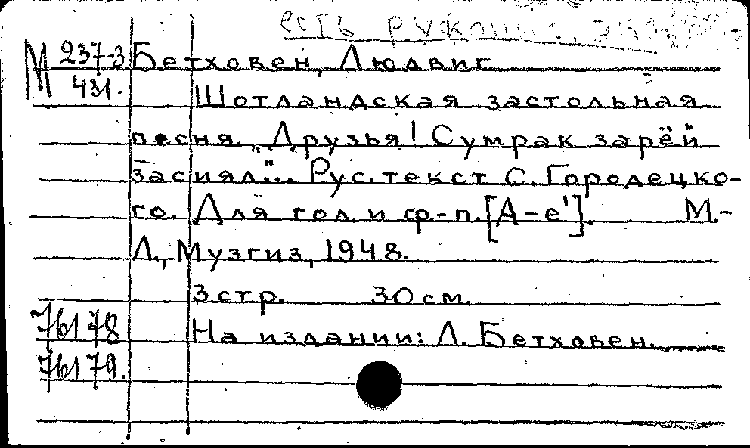 есть
М 237-3 Бетховен, Людвиг
431. Шотландская застольная
песня. „Друзья! Сумрак зарёй
засиял"... Рус. текст С. Городецко-
го. Для гол. и ф-п. [А-е']. М.-
Л., Музгиз, 1948.
3 стр. 30 см.
76178 На издании: Л. Бетховен.
76179.